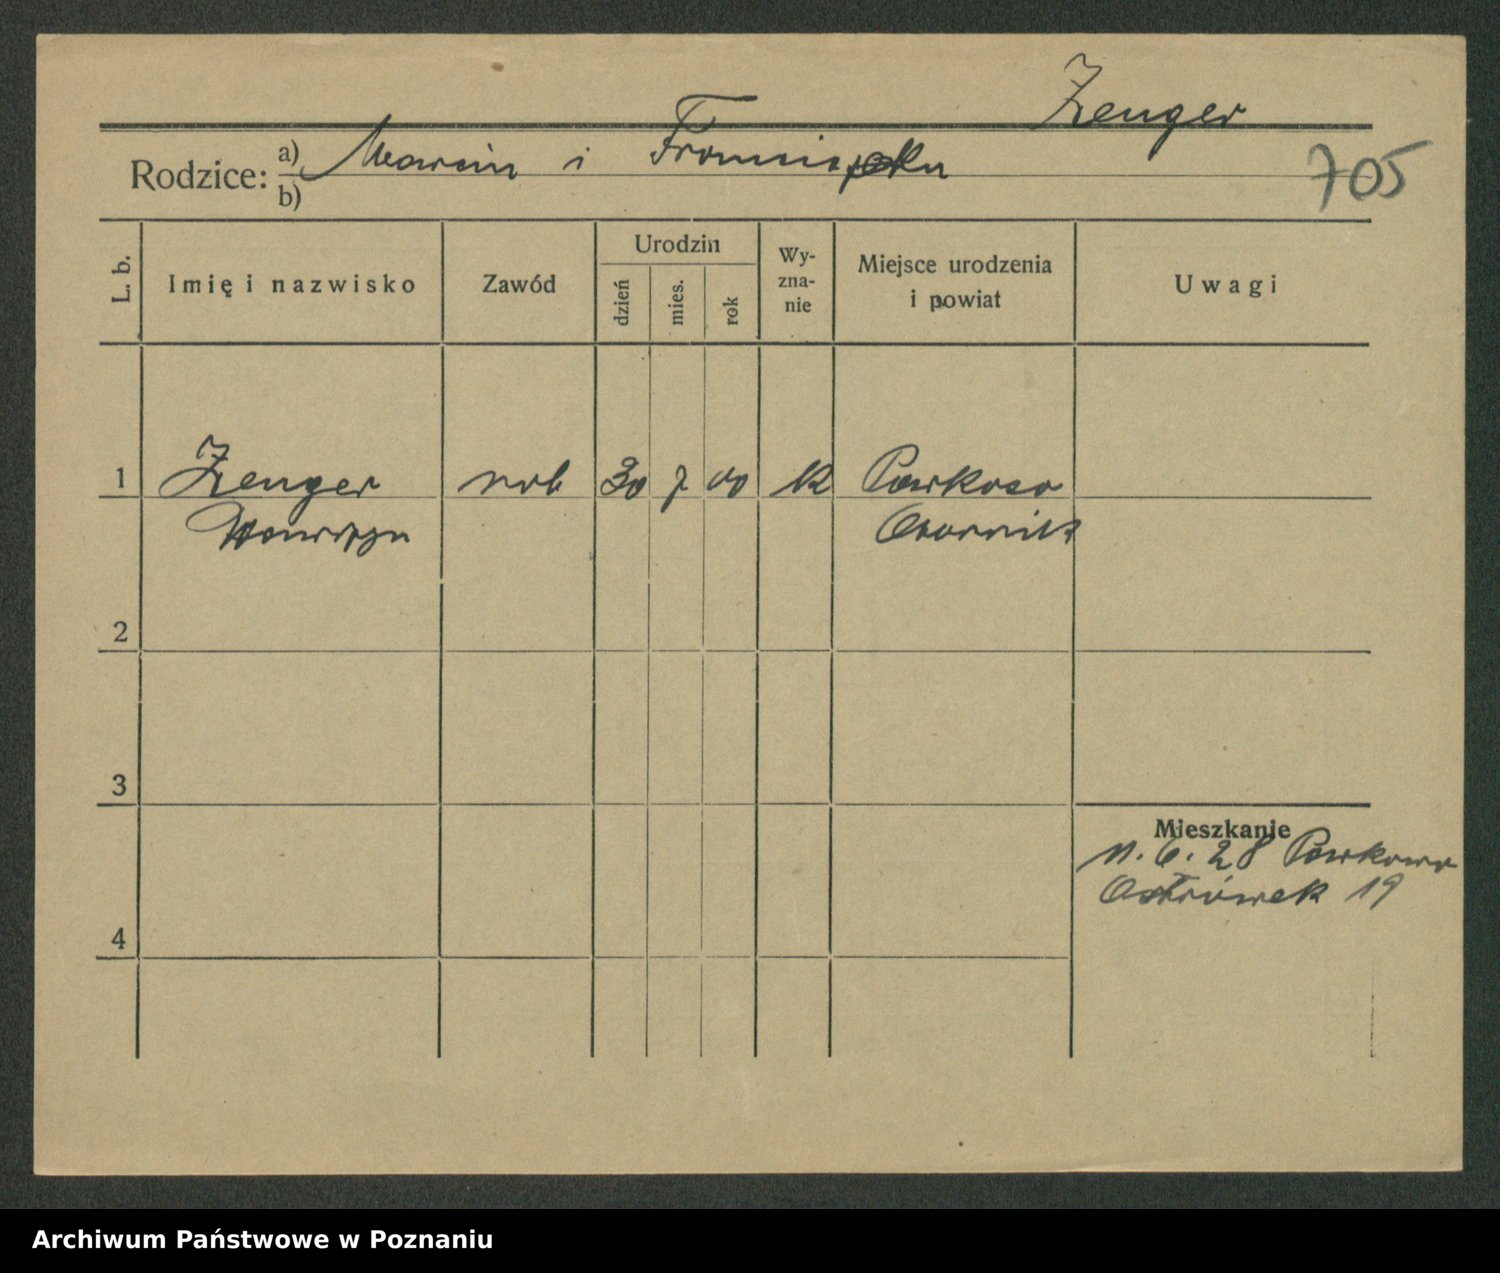 Zenger
Rodzice: a) Marcin i Franciszka
b)
705
L. b.
Imię i nazwisko
Zawód
Urodzin
dzień
mies.
rok
Wy-
zna-
nie
Miejsce urodzenia
i powiat
Uwagi
1 Zenger rob 30 7 00 k Parkowo
Wawrzyn Obornik
2
3
4
Mieszkanie
11. 6. 28 Parkowo
Ostrówek 19
Archiwum Państwowe w Poznaniu